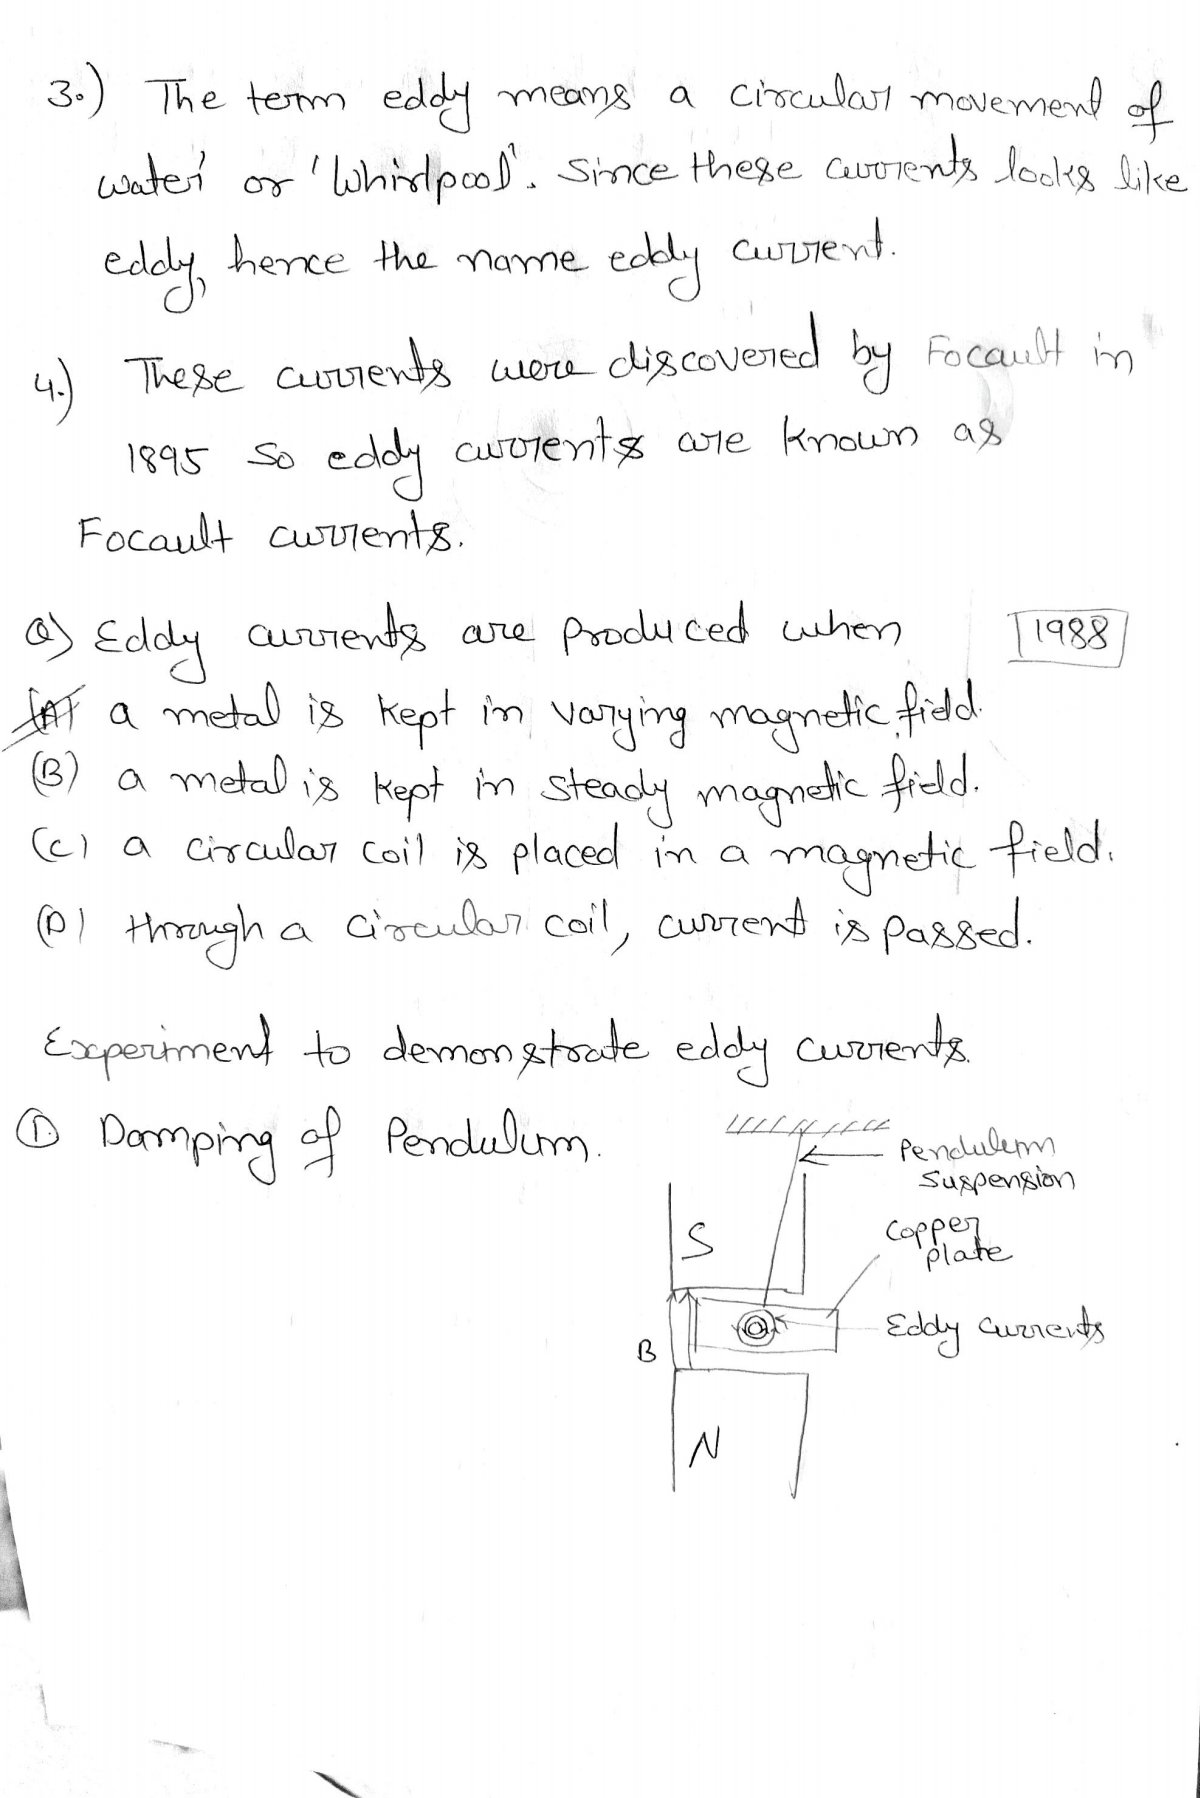 3.) The term eddy means a circular movement of
water' or 'Whirlpool'. Since these currents looks like
eddy, hence the name eddy current.
4.) These currents were discovered by Focault in
1895 so eddy currents are known as
Focault currents.
Q) Eddy currents are produced when 1988
(A) a metal is kept in varying magnetic field.
(B) a metal is kept in steady magnetic field.
(C) a circular coil is placed in a magnetic field.
(D) through a circular coil, current is passed.
Experiment to demonstrate eddy currents.
① Damping of Pendulum.
Pendulum
suspension
S
copper
plate
Eddy currents
B
N